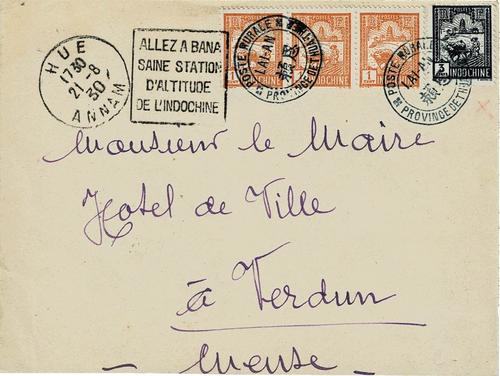 HUE
1730
21-8
30
ANNAM
ALLEZ A BANA
SAINE STATION
D'ALTITUDE
DE L'INDOCHINE
POSTE RURALE
PROVINCE DE TH
INDOCHINE
1
POSTE RURALE
PROVINCE DE TH
3
INDOCHINE
Monsieur le Maire
Hotel de Ville
à Verdun
- Meuse -